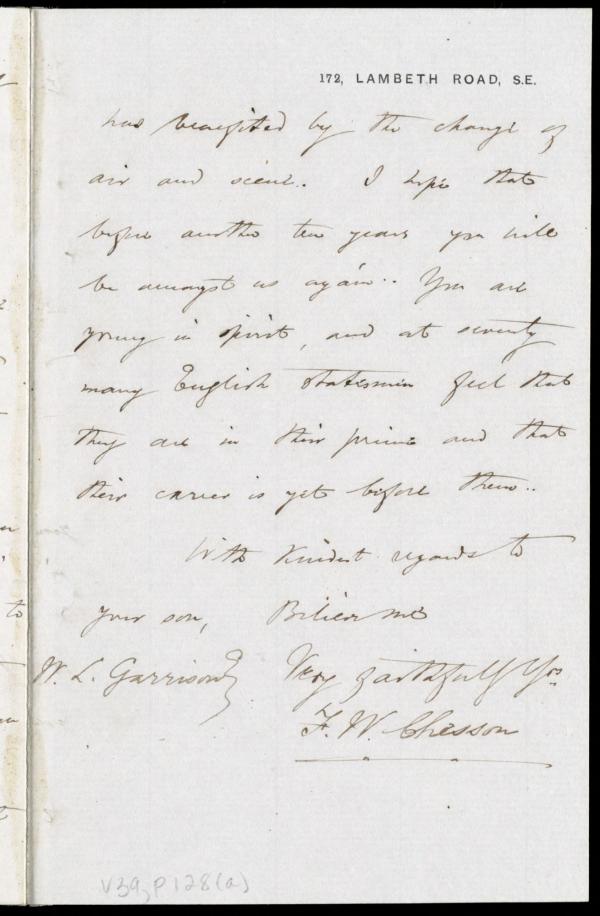 172, LAMBETH ROAD, S.E.
has benefited by the change of
air and scene. I hope that
before another ten years you will
be amongst us again. You are
young in spirit, and at seventy
many English statesmen feel that
they are in their prime and that
their career is yet before them.
With kindest regards to
your son, Believe me
W. L. Garrison Very faithfully Yrs
F. W. Chesson
V39, P128(a)